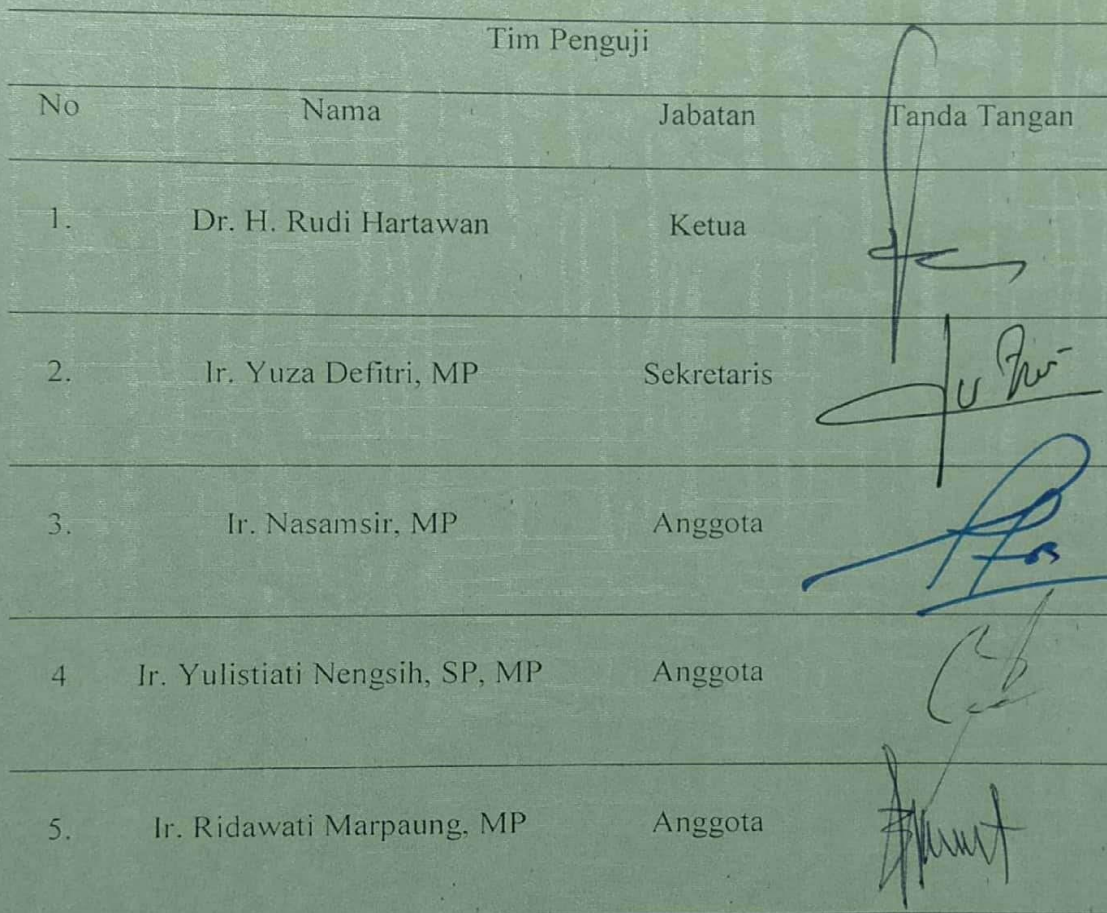 Tim Penguji
No Nama Jabatan Tanda Tangan
1. Dr. H. Rudi Hartawan Ketua
2. Ir. Yuza Defitri, MP Sekretaris
3. Ir. Nasamsir, MP Anggota
4 Ir. Yulistiati Nengsih, SP, MP Anggota
5. Ir. Ridawati Marpaung, MP Anggota